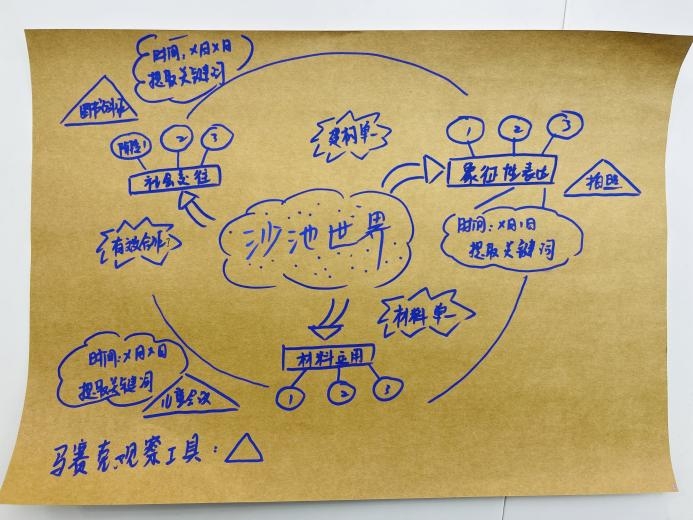 时间：x月x日
提取关键词
图书验证
阶段1
2
3
社会交往
有效合作？
建构单一
1
2
3
象征性表达
拍照
时间：x月x日
提取关键词
沙池世界
材料单一
材料应用
1
2
3
时间：x月x日
提取关键词
儿童会议
马赛克观察工具：